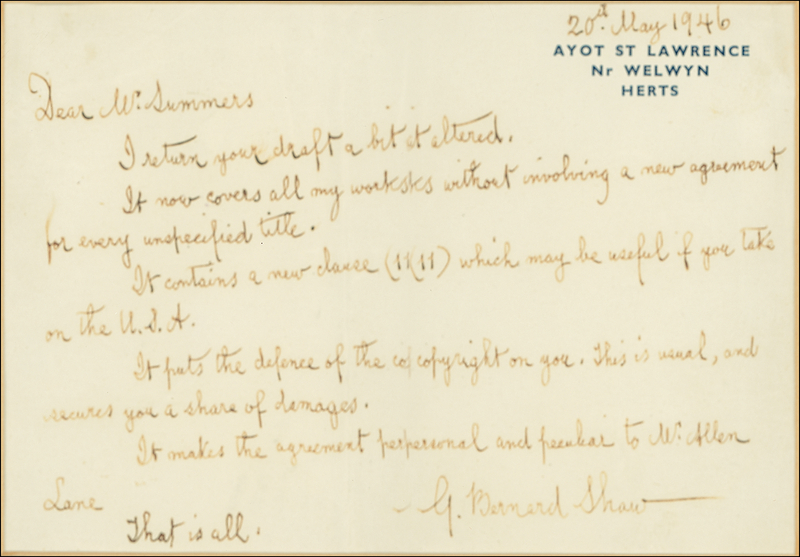 20th May 1946
AYOT ST LAWRENCE
Nr WELWYN
HERTS
Dear Mr Summers
I return your draft a bit at altered.
It now covers all my worksks without involving a new agreement
for every unspecified title.
It contains a new clause (11(11) which may be useful if you take
on the U.S.A.
It puts the defence of the co copyright on you. This is usual, and
secures you a share of damages.
It makes the agreement perpersonal and peculiar to Mr Allen
Lane
G. Bernard Shaw
That is all.